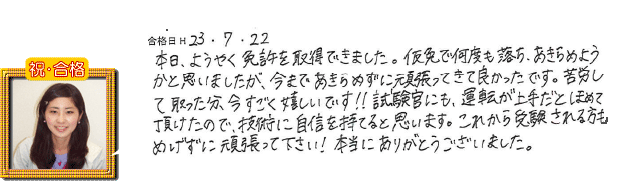 祝・合格
合格日 H 23・7・22
本日、ようやく免許を取得できました。仮免で何度も落ち、あきらめよう
かと思いましたが、今まであきらめずに頑張ってきて良かったです。苦労し
て取った分、今すごく嬉しいです!!試験官にも、運転が上手だとほめて
頂けたので、技術に自信を持てると思います。これから受験される方も
めげずに頑張って下さい!本当にありがとうございました。